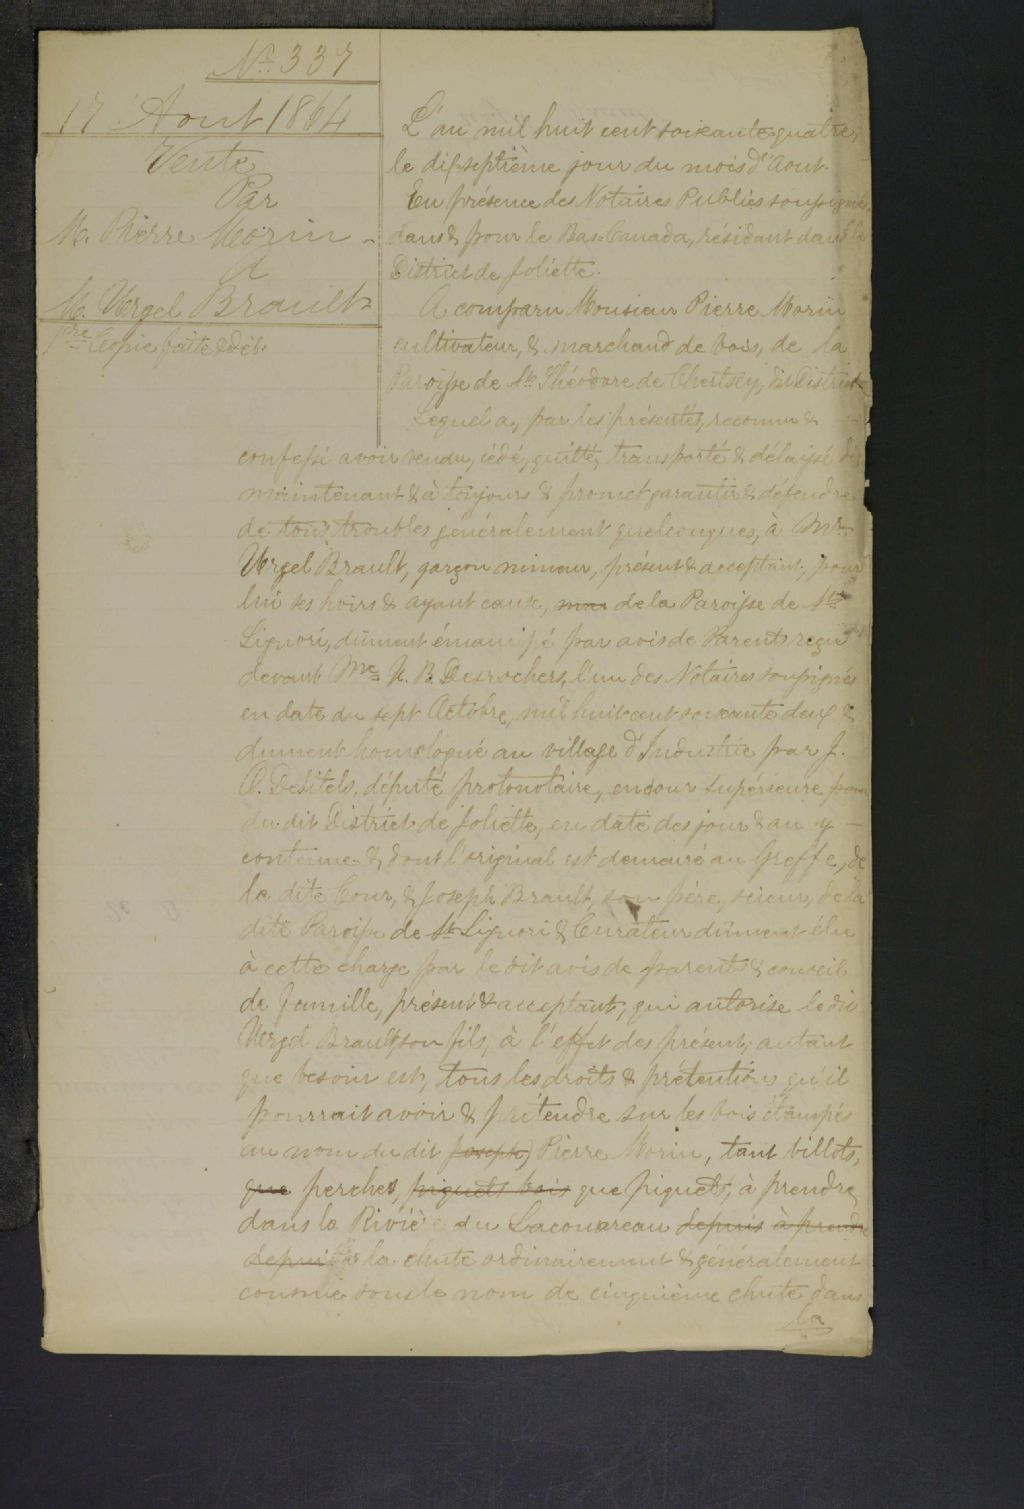 No. 337
17 Aout 1864
Vente
Par
M. Pierre Morin
A
M. Urgel Brault
1ère Copie faite & dél.
L'an mil huit cent soixante-quatre,
le dix-septième jour du mois d'Aout.
En présence des Notaires Publics soussignés,
dans & pour le Bas-Canada, résidant dans le
District de Joliette.
A comparu Monsieur Pierre Morin
cultivateur, & marchand de bois, de la
Paroisse de St. Théodore de Chertsey, dit District
Lequel a, par les présentes, reconnu &
confessé avoir vendu, cédé, quitté, transporté & délaissé dès
maintenant & à toujours & promet garantir & défendre
de tous troubles généralement quelconques, à Mr.
Urgel Brault, garçon mineur, présent & acceptant, pour
lui ses hoirs & ayant cause, mar de la Paroisse de St.
Liguori, dûment émancipé par avis de Parents reçu
devant Me. U. B. Desrochers, l'un des Notaires soussignés
en date du sept Octobre, mil huit cent soixante deux &
dument homologué au village d'Industrie par J.
O. Desilets, député protonotaire, en cour supérieure pour
du dit District de Joliette, en date des jour & an y
contenus & dont l'original est demeuré au Greffe, de
la dite Cour, & Joseph Brault, son père, scieur, de la
dite Paroisse de St. Liguori & Curateur dûment élu
à cette charge par le dit avis de parents & conseil
de famille, présent & acceptant, qui autorise le dit
Urgel Brault, son fils, à l'effet des présent, autant
que besoin est, tous les droits & prétentions qu'il
pourrait avoir & prétendre sur les bois étampés
au nom du dit Joseph) Pierre Morin, tant billots,
que perches, piquets bois que piquets, à prendre
dans la Rivière du Lacouareau depuis à prendre
depuis la chute ordinairement & généralement
connue sous le nom de cinquième chute dans
la